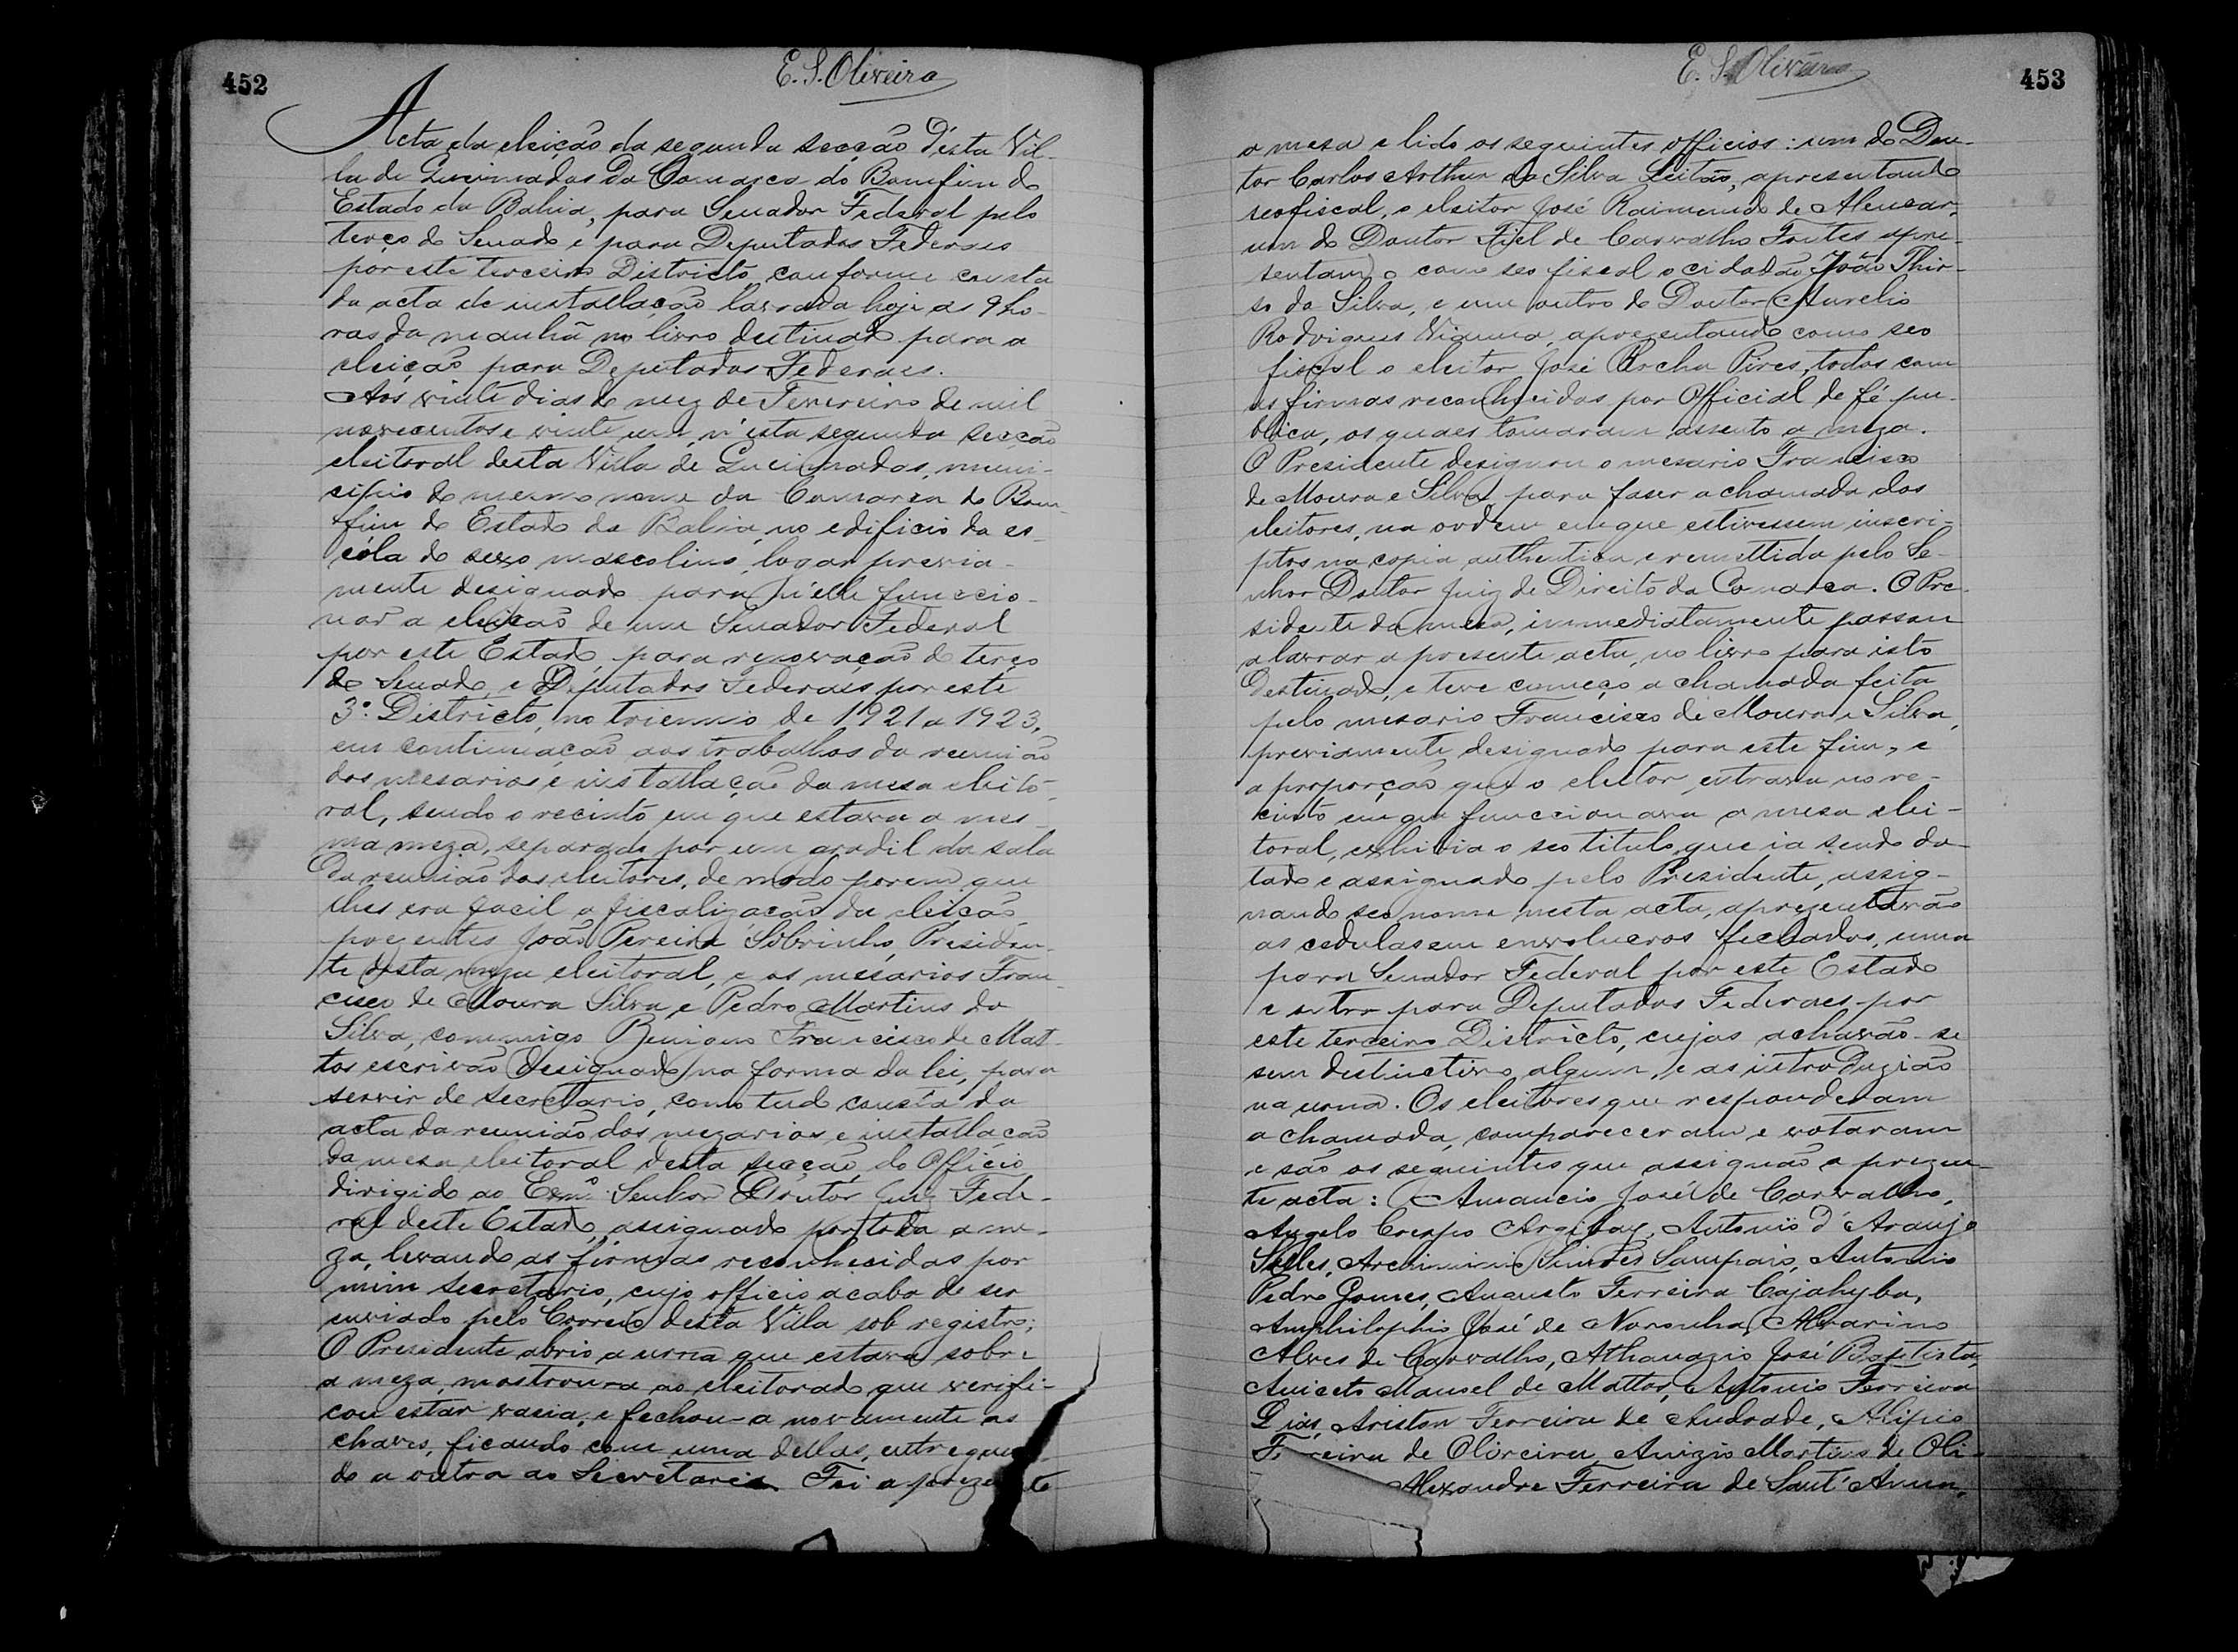 452
E. S. Oliveira
Acta da eleição da segunda secção d'esta Vil-
la de Queimadas da Comarca do Bomfim do
Estado da Bahia, para Senador Federal pelo
terço do Senado e para Deputados Federaes
por este terceiro Districto, conforme consta
da acta de installação lavrada hoje as 9 ho-
ras da manhã no livro destinado para a
eleição para Deputados Federaes.
Aos vinte dias do mez de Fevereiro de mil
novecentos e vinte um, n'esta segunda secção
eleitoral desta Villa de Queimadas, muni-
cipio do mesmo nome da Comarca do Bom-
fim do Estado da Bahia, no edificio da es-
cóla do sexo mascolino, logar previa-
mente designado para n'elle funccio-
nar a eleição de um Senador Federal
por este Estado, para renovação do terço
do Senado, e Deputados Federaes por este
3º. Districto, no triennio de 1921 a 1923,
em continuação aos trabalhos da reunião
dos mesarios e installação da mesa eleito-
ral, sendo o recinto em que estava a mes-
ma meza, separado por um gradil da sala
da reunião dos eleitores, de modo porem que
lhes era facil a fiscalização da eleição,
prezentes João Pereira Sobrinho, Presiden-
te desta meza eleitoral, e os mesarios Fran-
cisco de Moura Silva e Pedro Martins da
Silva, commigo Benigno Francisco de Mat-
tos escrivão designado na forma da lei, para
servir de secretario, como tudo consta da
acta da reunião dos mezarios e installação
da mesa eleitoral desta secção, do Officio
dirigido ao Exmº Senhor Doutor Juiz Fede-
ral deste Estado, assignado por toda a me-
za, levando as firmas reconhecidas por
mim secretario, cujo officio acaba de ser
enviado pelo Correio desta Villa sob registro;
O Presidente abrio a urna que estava sobre
a meza, mostroura ao eleitorado que verifi-
cou estar vasia, e fechou-a novamente as
chaves, ficando com uma dellas, entregan-
do a outra ao Secretario. Foi a preze te
E. S. Oliveira
453
a mesa e lido os seguintes officios: um do Dou-
tor Carlos Arthur da Silva Leitão, apresentando
seo fiscal, o eleitor José Raimundo de Alencar,
um do Doutor Fiel de Carvalho Fontes apre-
sentando como seo fiscal o cidadão João Thir-
so da Silva, e um outro do Doutor Aurelio
Rodrigues Vianna, apresentando como seo
fiscal o eleitor José Rocha Pires, todos com
as firmas reconhecidas por Official de fé pu-
blica, os quaes tomaram assento a meza.
O Presidente designou o mesario Francisco
de Moura e Silva para faser a chamada dos
eleitores, na ordem em que estivessem inscri-
ptos na copia authentica e remettida pelo Se-
nhor Doutor Juiz de Direito da Comarca. O Pre-
sidente da mesa, immediatamente passou
a lavrar a presente acta, no livro para isto
destinado, e teve começo a chamada feita
pelo mesario Francisco de Moura e Silva,
previamente designado para este fim, e
a proporção que o eleitor entrava no re-
cinto em que funccionava a mesa elei-
toral, exhibia o seo titulo, que ia sendo da-
tado e assignado pelo Presidente, assig-
nando seo nome nesta acta, aprezentavão
as cedulas em envolucros fechados, uma
para Senador Federal por este Estado
e outra para Deputados Federaes por
este terceiro Districto, cujas achavão-se
sem destinctivo algum, e as introduzião
na urna. Os eleitores que responderam
a chamada, compareceram e votaram
e são os seguintes que assignão a prezen-
te acta: Amancio José de Carvalho,
Angelo Crespo Argibay, Antonio d'Araujo
Salles, Archimimo Simões Sampaio, Antonio
Pedro Gomes, Augusto Ferreira Cajahyba,
Amphilophio José de Noronha, Alvarino
Alves de Carvalho, Athanazio José Baptista,
Aniceto Manoel de Mattos, Antonio Ferreira
Dias, Ariston Ferreira de Andrade, Alipio
F reira de Oliveira, Anizio Martins de Oli-
Alexandre Ferreira de Sant'Anna,